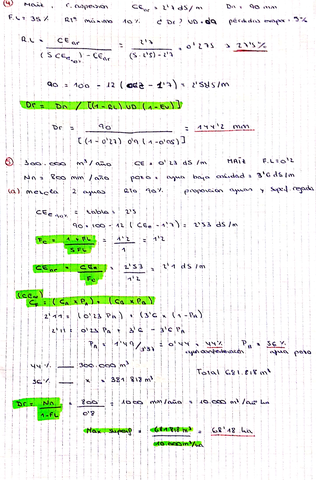 ④ Maíz F. aspersion CEar = 2'7 dS/m Dn = 90 mm
F.L = 35% Rto máximo 10% ¿ Dr ? UD = 0'9 pérdidas evapor. 5%
R.L = CEar / (5 CEe) - CEar = 2'7 / (5·2'5) - 2'7 = 0'275 → 27'5%
90 = 100 - 12 (CEe - 1'7) = 2'53 dS/m
Dr = Dn / [(1-RL) UD (1-Ev)]
Dr = 90 / [(1-0'27) 0'9 (1-0'05)] = 144'2 mm
⑤ 300.000 m³/año CE = 0'23 dS/m Maíz F.L = 0'2
Nn = 800 mm/año pozo = agua baja calidad = 3'6 dS/m
(a) mezcla 2 aguas Rto 90% proporcion aguas y superf regada
CEe 90% = tabla = 2'5
90 = 100 - 12 (CEe - 1'7) = 2'53 dS/m
Fc = 1 + FL / 5 FL = 1'2 / 1 = 1'2
CEar = CEe / Fc = 2'53 / 1'2 = 2'1 dS/m
Cf = (Ca × Pa) + (Cb × Pb)
2'11 = (0'23 PA) + (3'6 × (1-PA)
2'11 = 0'23 PA + 3'6 - 3'6 PA
PA = 1'49 / 3'37 = 0'44 = 44% PB = 56%
agua pozo
44% — 300.000 m³
56% — x x = 381.818 m³
Total 681.818 m³
Dr = Nn / 1-FL = 800 / 0'8 = 1000 mm/año = 10.000 m³/año ha
Max superf = 681818 m³ / 10.000 m³/ha = 68'18 ha